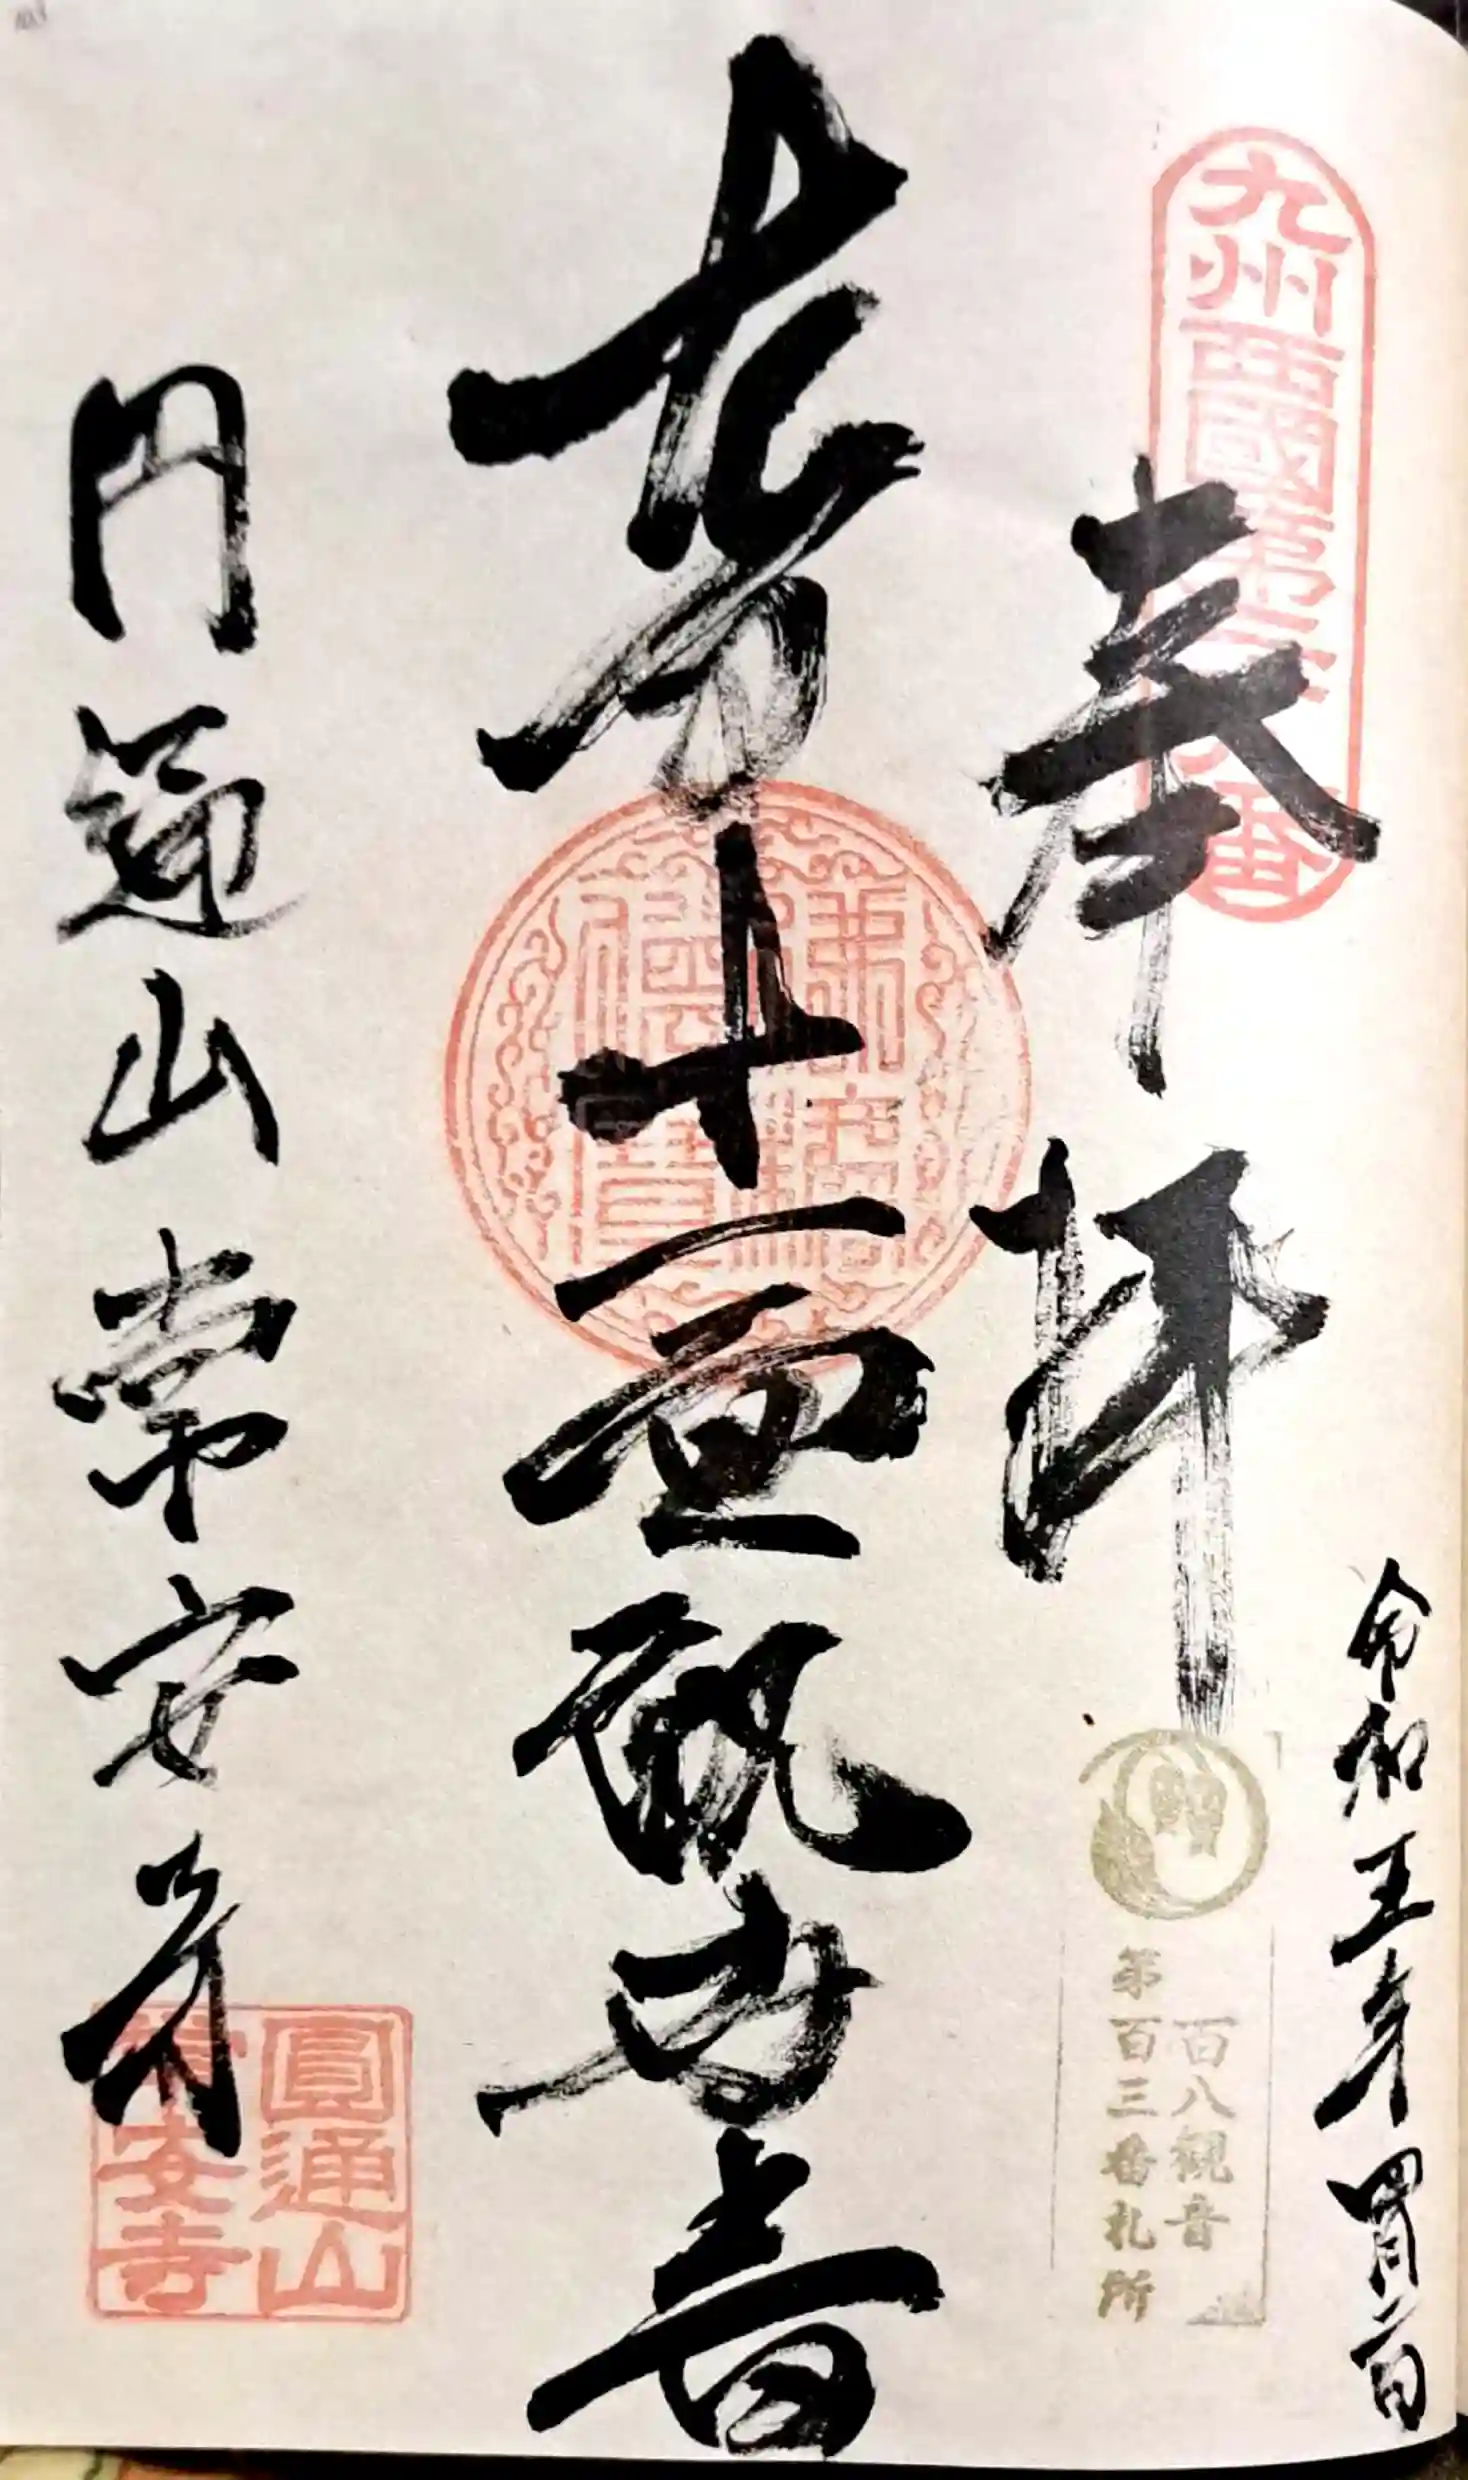 九州西國第
奉拝
令和五年四月
百八観音
第百三番札所
本尊十一面観世音
円通山常安寺
圓通山
常安寺